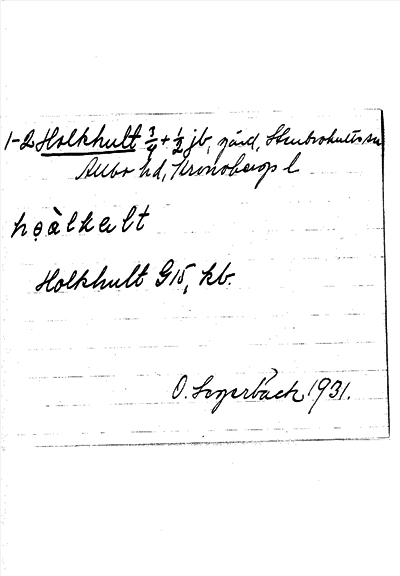 1-2 Holkhult 3/4 + 1/2 jb, gård, Stenbrohults sn
Allbo hd, Kronobergs l
họàlkelt
Holkhult G15, kb.
O. Sogerbäck 1931.